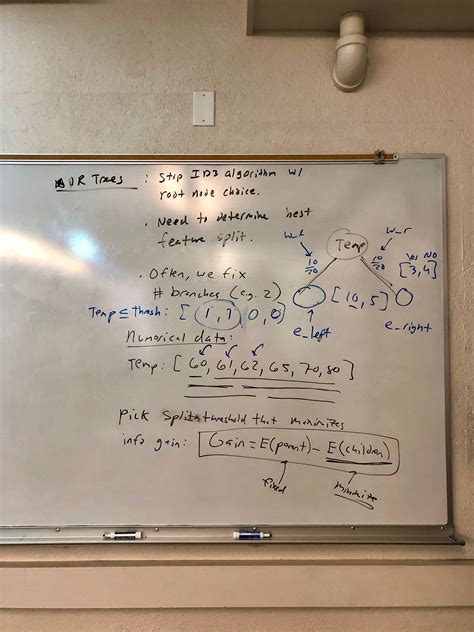 UR Trees : Stop ID3 algorithm w/
root node choice.
. Need to determine best
feature split.
. Often, we fix
# branches (e.g. 2)
w_l
w_r
Temp
10/20
10/20
Yes No
[3,4]
[10,5]
e_left
e_right
Temp ≤ thresh: [1, 1, 0, 0]
Numerical data:
Temp: [60, 61, 62, 65, 70, 80]
Pick split threshold that maximizes
info gain: Gain = E(parent) - E(children)
fixed
minimize